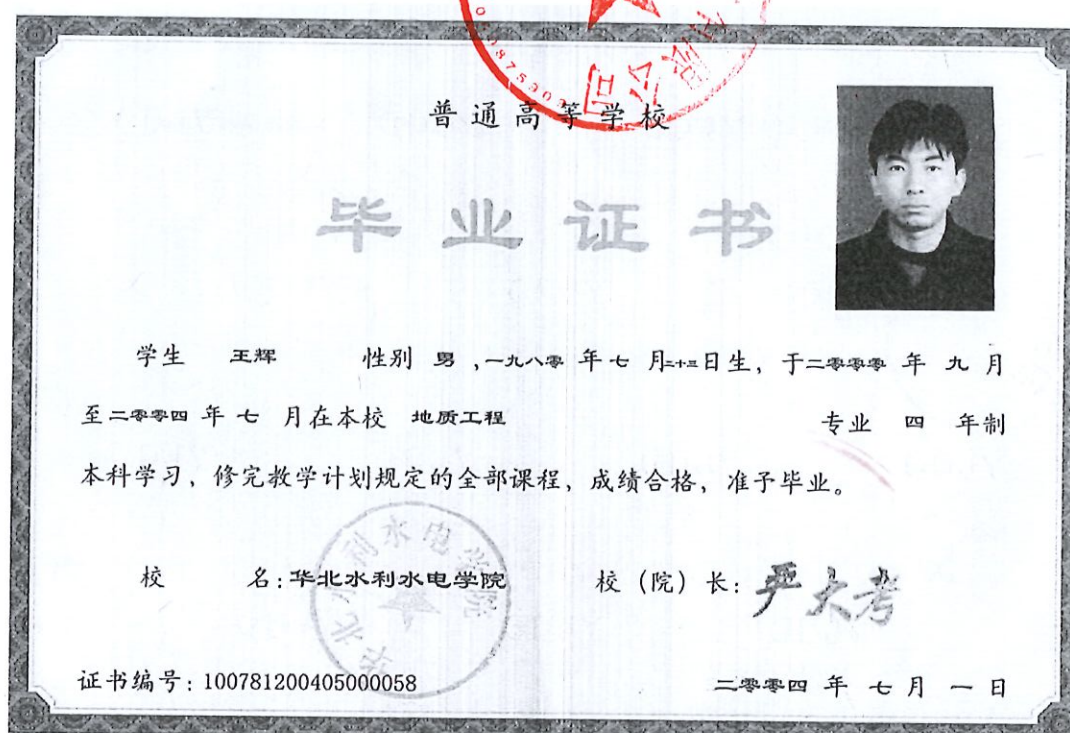 公司
普通高等学校
毕业证书
学生 王辉 性别 男，一九八零 年 七 月二十三日生，于二零零零 年 九 月
至二零零四 年 七 月在本校 地质工程 专业 四 年制
本科学习，修完教学计划规定的全部课程，成绩合格，准予毕业。
校 名：华北水利水电学院 校（院）长：严大考
华北水利水电学院
证书编号：100781200405000058 二零零四 年 七 月 一 日